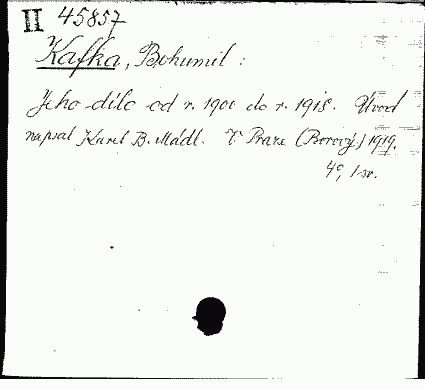 II 45857
Kafka, Bohumil:
Jeho dílo od r. 1900 do r. 1918. Úvod
napsal Karel B. Mádl. V Praze (Borový) 1919.
4°, 1 sv.